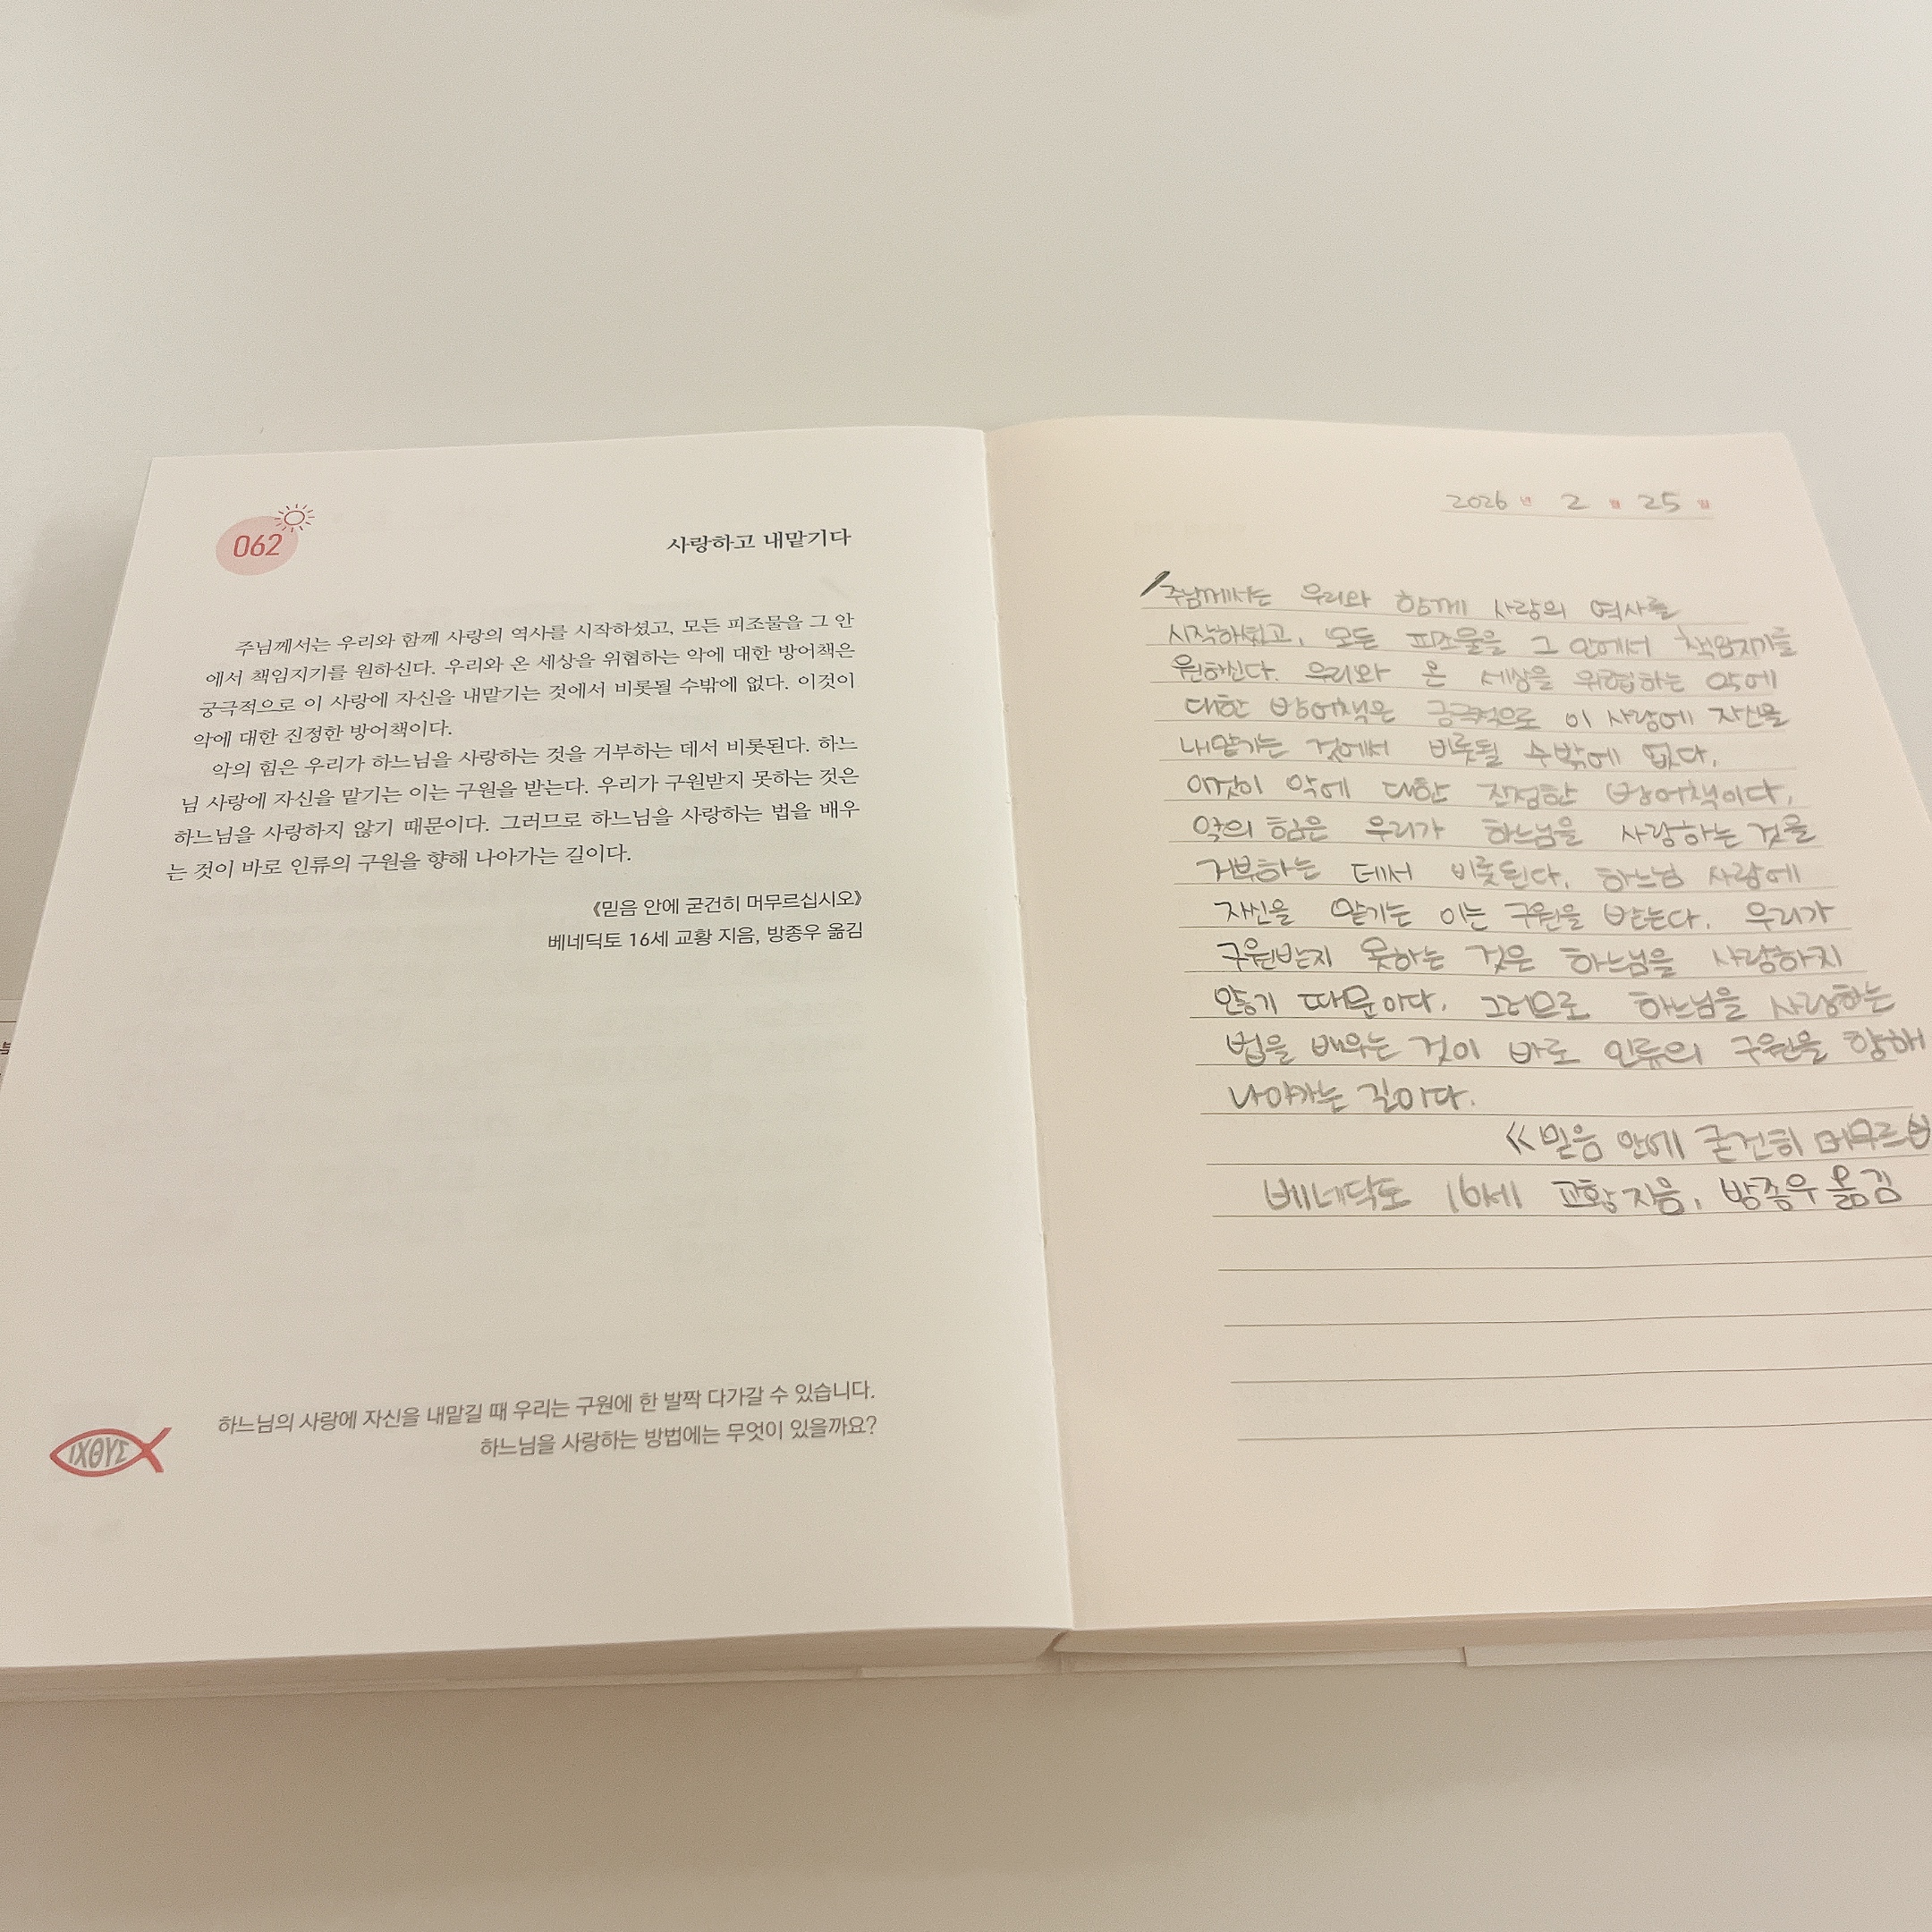 062
사랑하고 내맡기다
주님께서는 우리와 함께 사랑의 역사를 시작하셨고, 모든 피조물을 그 안
에서 책임지기를 원하신다. 우리와 온 세상을 위협하는 악에 대한 방어책은
궁극적으로 이 사랑에 자신을 내맡기는 것에서 비롯될 수밖에 없다. 이것이
악에 대한 진정한 방어책이다.
악의 힘은 우리가 하느님을 사랑하는 것을 거부하는 데서 비롯된다. 하느
님 사랑에 자신을 맡기는 이는 구원을 받는다. 우리가 구원받지 못하는 것은
하느님을 사랑하지 않기 때문이다. 그러므로 하느님을 사랑하는 법을 배우
는 것이 바로 인류의 구원을 향해 나아가는 길이다.
《믿음 안에 굳건히 머무르십시오》
베네딕토 16세 교황 지음, 방종우 옮김
하느님의 사랑에 자신을 내맡길 때 우리는 구원에 한 발짝 다가갈 수 있습니다.
하느님을 사랑하는 방법에는 무엇이 있을까요?
ΙΧΘΥΣ
2026 년 2 월 25 일
주님께서는 우리와 함께 사랑의 역사를
시작하셨고, 모든 피조물을 그 안에서 책임지기를
원하신다. 우리와 온 세상을 위협하는 악에
대한 방어책은 궁극적으로 이 사랑에 자신을
내맡기는 것에서 비롯될 수밖에 없다.
이것이 악에 대한 진정한 방어책이다.
악의 힘은 우리가 하느님을 사랑하는 것을
거부하는 데서 비롯된다. 하느님 사랑에
자신을 맡기는 이는 구원을 받는다. 우리가
구원받지 못하는 것은 하느님을 사랑하지
않기 때문이다. 그러므로 하느님을 사랑하는
법을 배우는 것이 바로 인류의 구원을 향해
나아가는 길이다.
《믿음 안에 굳건히 머무르
베네딕토 16세 교황 지음, 방종우 옮김